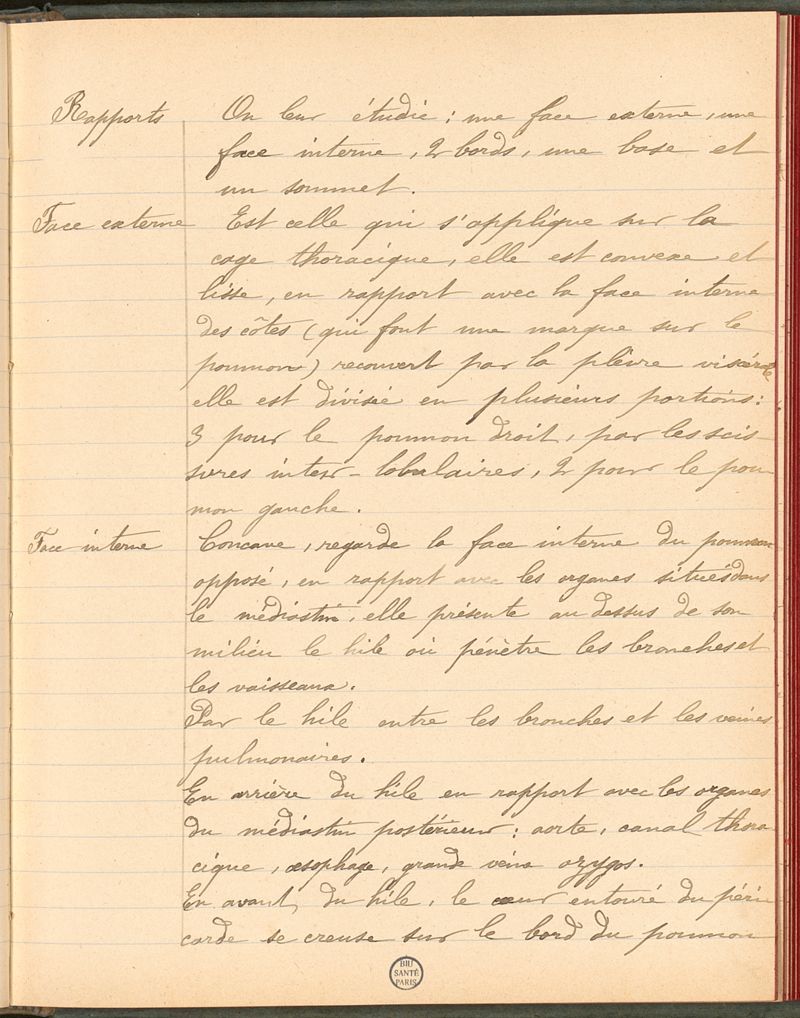 Rapports On leur étudie : une face externe, une
face interne, 2 bords, une base et
un sommet.
Face externe Est celle qui s'applique sur la
cage thoracique, elle est convexe et
lisse, en rapport avec la face interne
des côtes (qui font une marque sur le
poumon) recouvert par la plèvre viscérale
elle est divisée en plusieurs portions :
3 pour le poumon droit, par les scis
sures inter-lobulaires, 2 pour le pou
mon gauche.
Face interne Concave, regarde la face interne du poumon
opposé, en rapport avec les organes situés dans
le médiastin, elle présente au dessus de son
milieu le hile où pénètre les bronches et
les vaisseaux.
Par le hile entre les bronches et les veines
pulmonaires.
En arrière du hile en rapport avec les organes
du médiastin postérieur ; aorte, canal thora
cique, œsophage, grande veine azygos.
En avant, du hile, le cœur entouré du péri
carde se creuse sur le bord du poumon
BIU
SANTÉ
PARIS